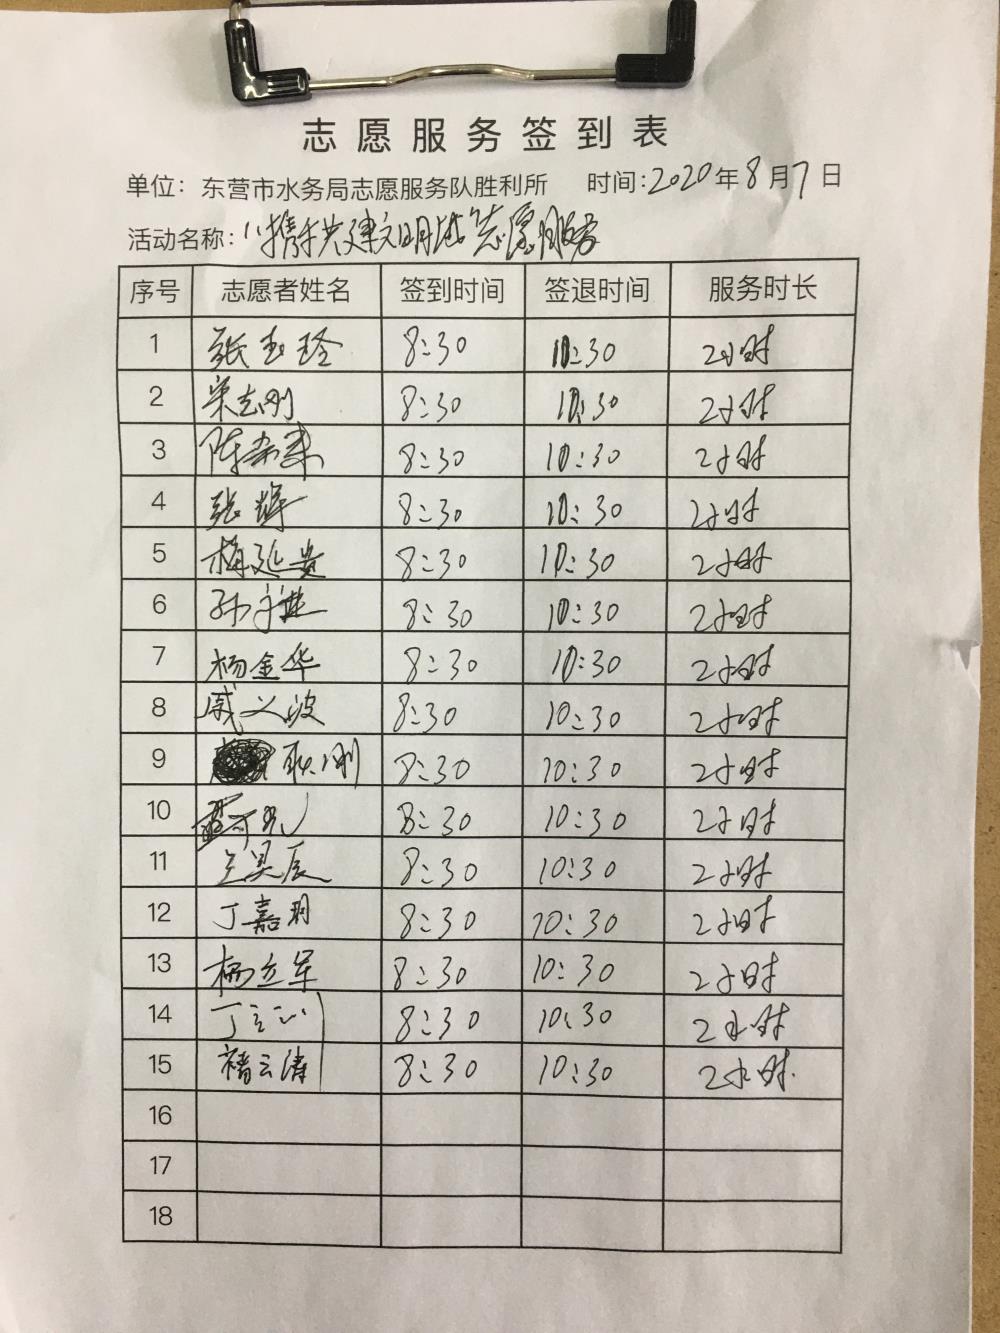 志愿服务签到表
单位：东营市水务局志愿服务队胜利所 时间:2020年8月7日
活动名称："携手共建文明城"志愿服务
序号 志愿者姓名 签到时间 签退时间 服务时长
1 张玉玲 8:30 10:30 2小时
2 宋志刚 8:30 10:30 2小时
3 陈 8:30 10:30 2小时
4 张辉 8:30 10:30 2小时
5 梅延贵 8:30 10:30 2小时
6 孙守业 8:30 10:30 2小时
7 杨金华 8:30 10:30 2小时
8 戚义波 8:30 10:30 2小时
9 耿刚 8:30 10:30 2小时
10 8:30 10:30 2小时
11 王昊辰 8:30 10:30 2小时
12 丁嘉玥 8:30 10:30 2小时
13 杨立军 8:30 10:30 2小时
14 丁 8:30 10:30 2小时
15 褚云涛 8:30 10:30 2小时
16
17
18